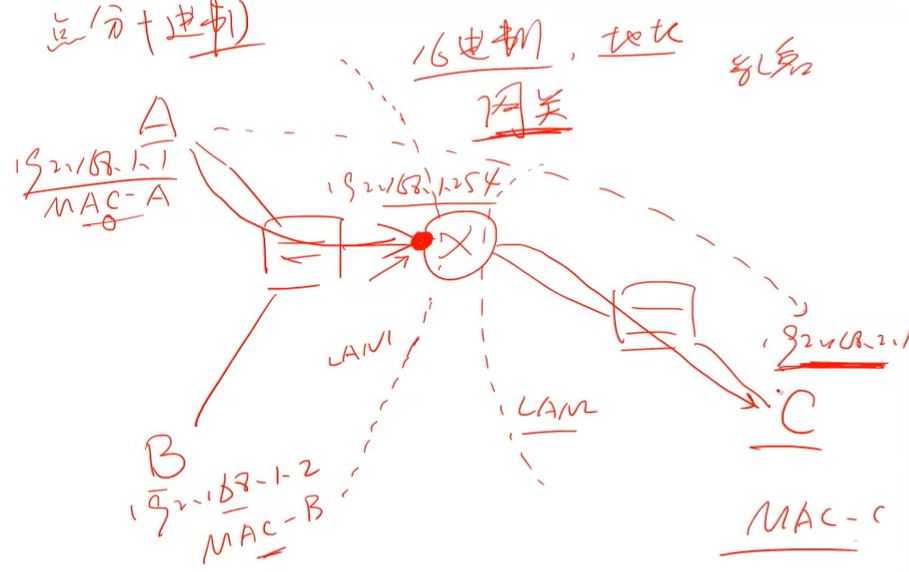 点分十进制
16进制. 地址
乱名
网关
A
192.168.1.1
MAC-A
192.168.1.254
X
LAN1
192.168.2.1
LAN2
C
B
192.168.1.2
MAC-B
MAC-C